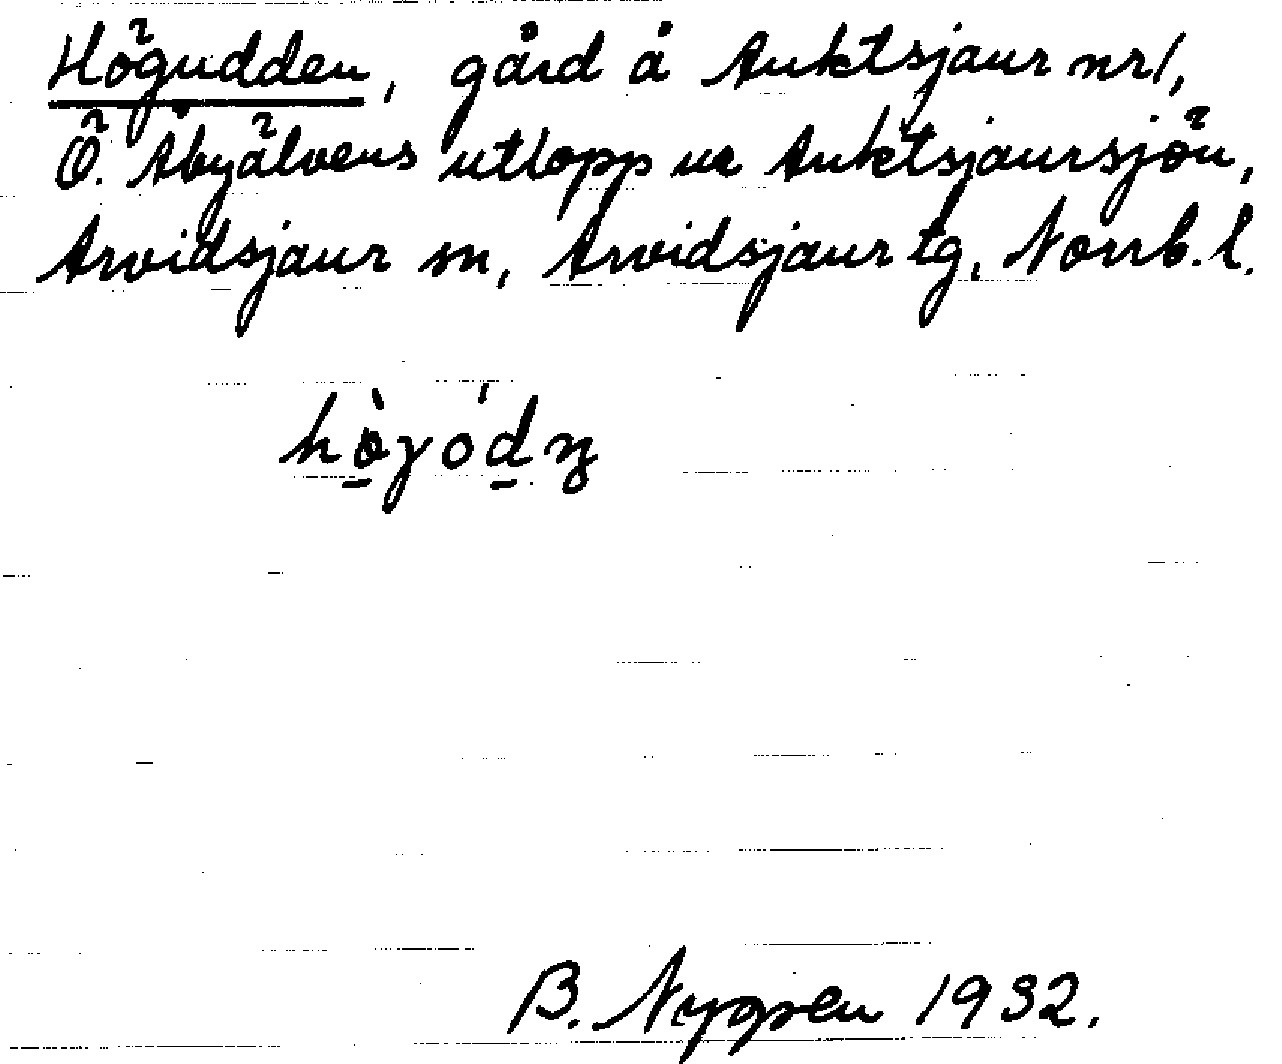 Högudden, gård å Auktsjaur nr 1,
Ö. Åbyälvens utlopp ur Auktsjaursjön,
Arvidsjaur sn, Arvidsjaur tg, Norrb. l.
B. Nygren 1932.